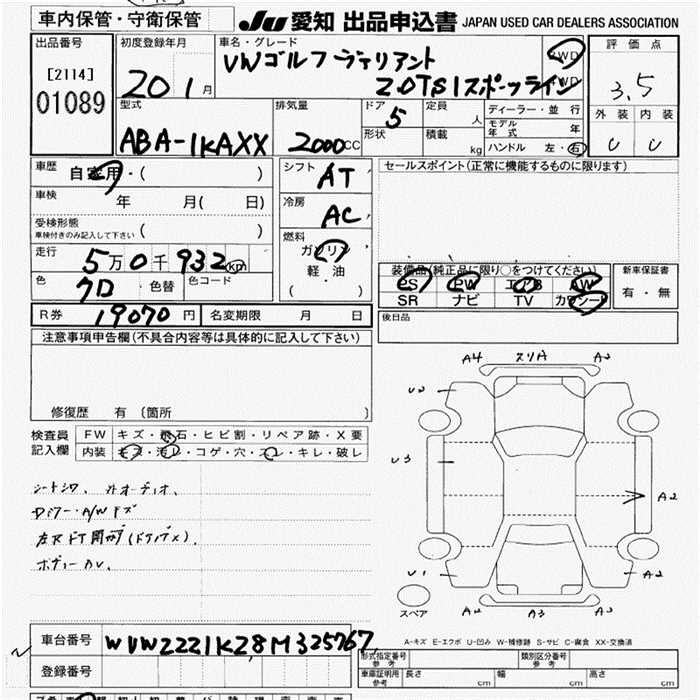 車内保管・守衛保管
JU 愛知 出品申込書 JAPAN USED CAR DEALERS ASSOCIATION
出品番号
[2114]
01089
初度登録年月
20 1 月
車名・グレード
VWゴルフヴァリアント
2.0TSIスポーツライン
2WD
4WD
評価点
3.5
外装 内装
C C
型式
ABA-1KAXX
排気量
2000cc
ドア
5
形状
定員
人
積載
kg
ディーラー・並行
モデル年式 年
ハンドル 左・右
車歴
自家用・( )
車検
年 月( 日)
受検形態
車検付きのみ記入して下さい ( )
走行
5万0千932km
色
クロ
・色替
色コード
シフト
AT
冷房
AC
燃料
ガソリン
軽・油
( ・ )
セールスポイント(正常に機能するものに限ります)
装備品(純正品に限り○をつけてください)
PS PW エアB AW
SR ナビ TV カワシート
新車保証書
有・無
後日品
R券 19070円
名変期限 月 日
注意事項申告欄(不具合内容等は具体的に記入して下さい)
修復歴 有 〔箇所 〕
検査員記入欄
FW キズ・飛石・ヒビ割・リペア跡・X要
内装 キズ・汚レ・コゲ・穴・スレ・キレ・破レ
シートシワ、
ボディーUV、
A4 スリA A2
U2
U3
A2
U1
A2
A2 A3
スペア
A-キズ E-エクボ U-凹み W-補修跡 S-サビ C-腐食 XX-交換済
車台番号 WVWZZZ1KZ8M325767
登録番号
形式指定番号 参考
類別区分番号 参考
車庫証明用 参考
長さ cm
幅 cm
高さ cm